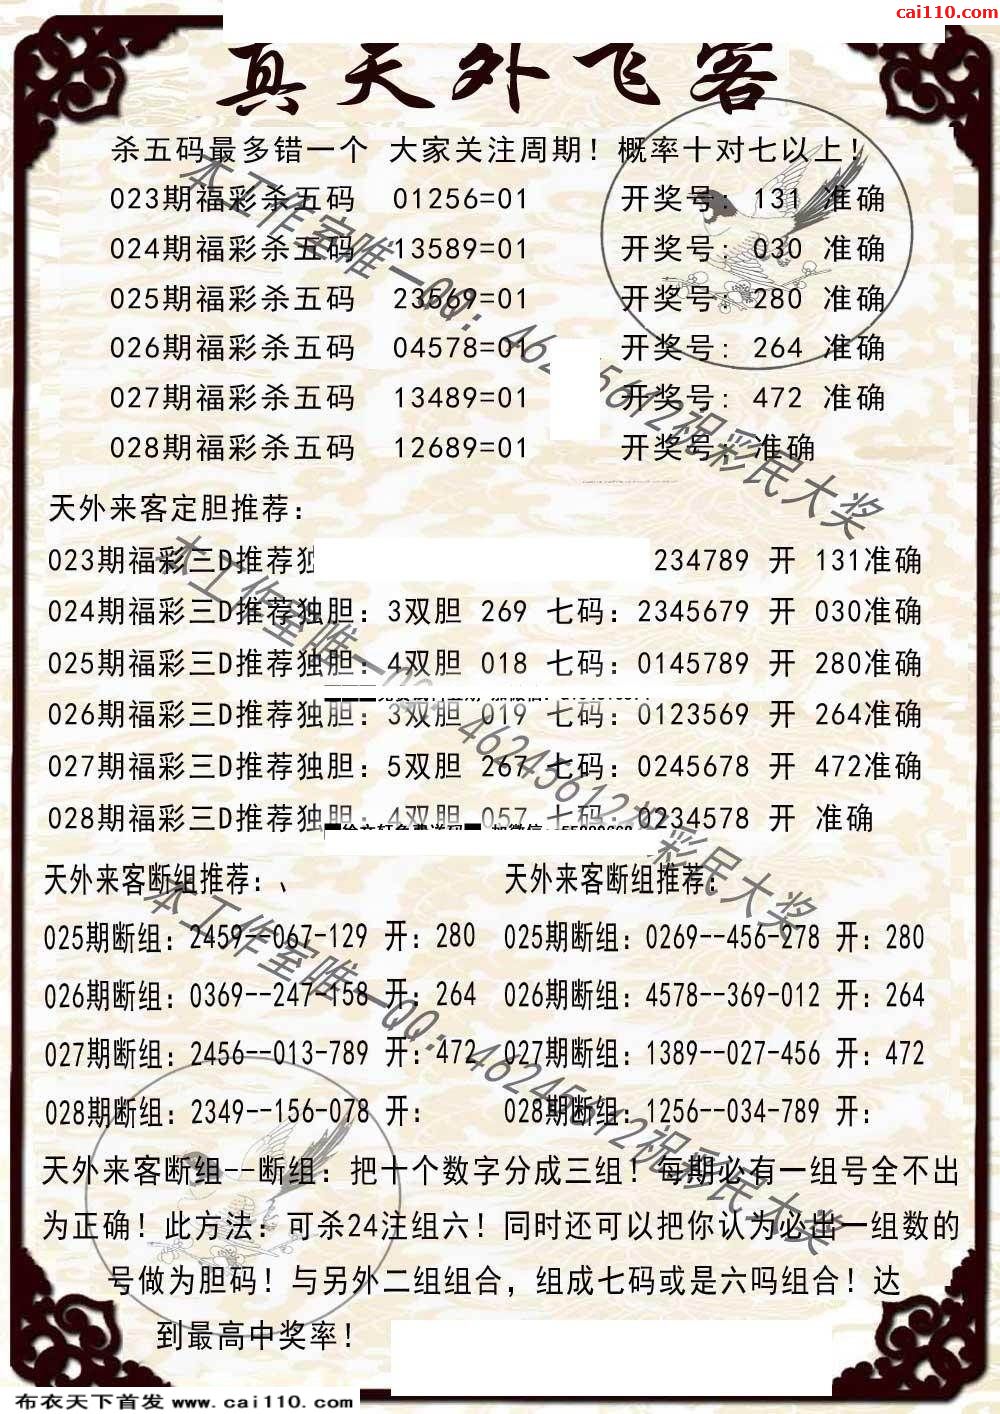 cai110.com
真天外飞客
杀五码最多错一个 大家关注周期！概率十对七以上！
023期福彩杀五码 01256=01 开奖号：131 准确
024期福彩杀五码 13589=01 开奖号：030 准确
025期福彩杀五码 23569=01 开奖号：280 准确
026期福彩杀五码 04578=01 开奖号：264 准确
027期福彩杀五码 13489=01 开奖号：472 准确
028期福彩杀五码 12689=01 开奖号：准确
天外来客定胆推荐：
023期福彩三D推荐独 234789 开 131准确
024期福彩三D推荐独胆：3双胆 269 七码：2345679 开 030准确
025期福彩三D推荐独胆：4双胆 018 七码：0145789 开 280准确
026期福彩三D推荐独胆：3双胆 019 七码：0123569 开 264准确
027期福彩三D推荐独胆：5双胆 267 七码：0245678 开 472准确
028期福彩三D推荐独胆：4双胆 057 七码：0234578 开 准确
天外来客断组推荐：、 天外来客断组推荐：
025期断组：2459--067-129 开：280 025期断组：0269--456-278 开：280
026期断组：0369--247-158 开：264 026期断组：4578--369-012 开：264
027期断组：2456--013-789 开：472 027期断组：1389--027-456 开：472
028期断组：2349--156-078 开： 028期断组：1256--034-789 开：
天外来客断组--断组：把十个数字分成三组！每期必有一组号全不出
为正确！此方法：可杀24注组六！同时还可以把你认为必出一组数的
号做为胆码！与另外二组组合，组成七码或是六吗组合！达
到最高中奖率！
本工作室唯一QQ：46245612祝彩民大奖
本工作室唯一QQ：46245612祝彩民大奖
本工作室唯一QQ：46245612祝彩民大奖
布衣天下首发 www.cai110.com